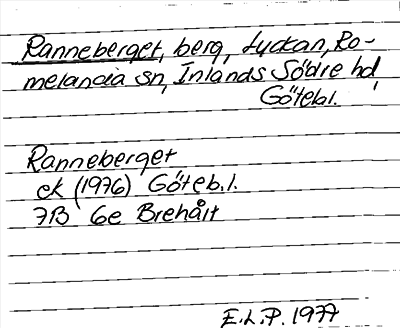 Ranneberget, berg, Lyckan, Ro-
melanda sn, Inlands Södre hd,
Götebl.
Ranneberget
ek (1976) Göteb.l.
7B 6e Brehålt
E.L.P. 1977